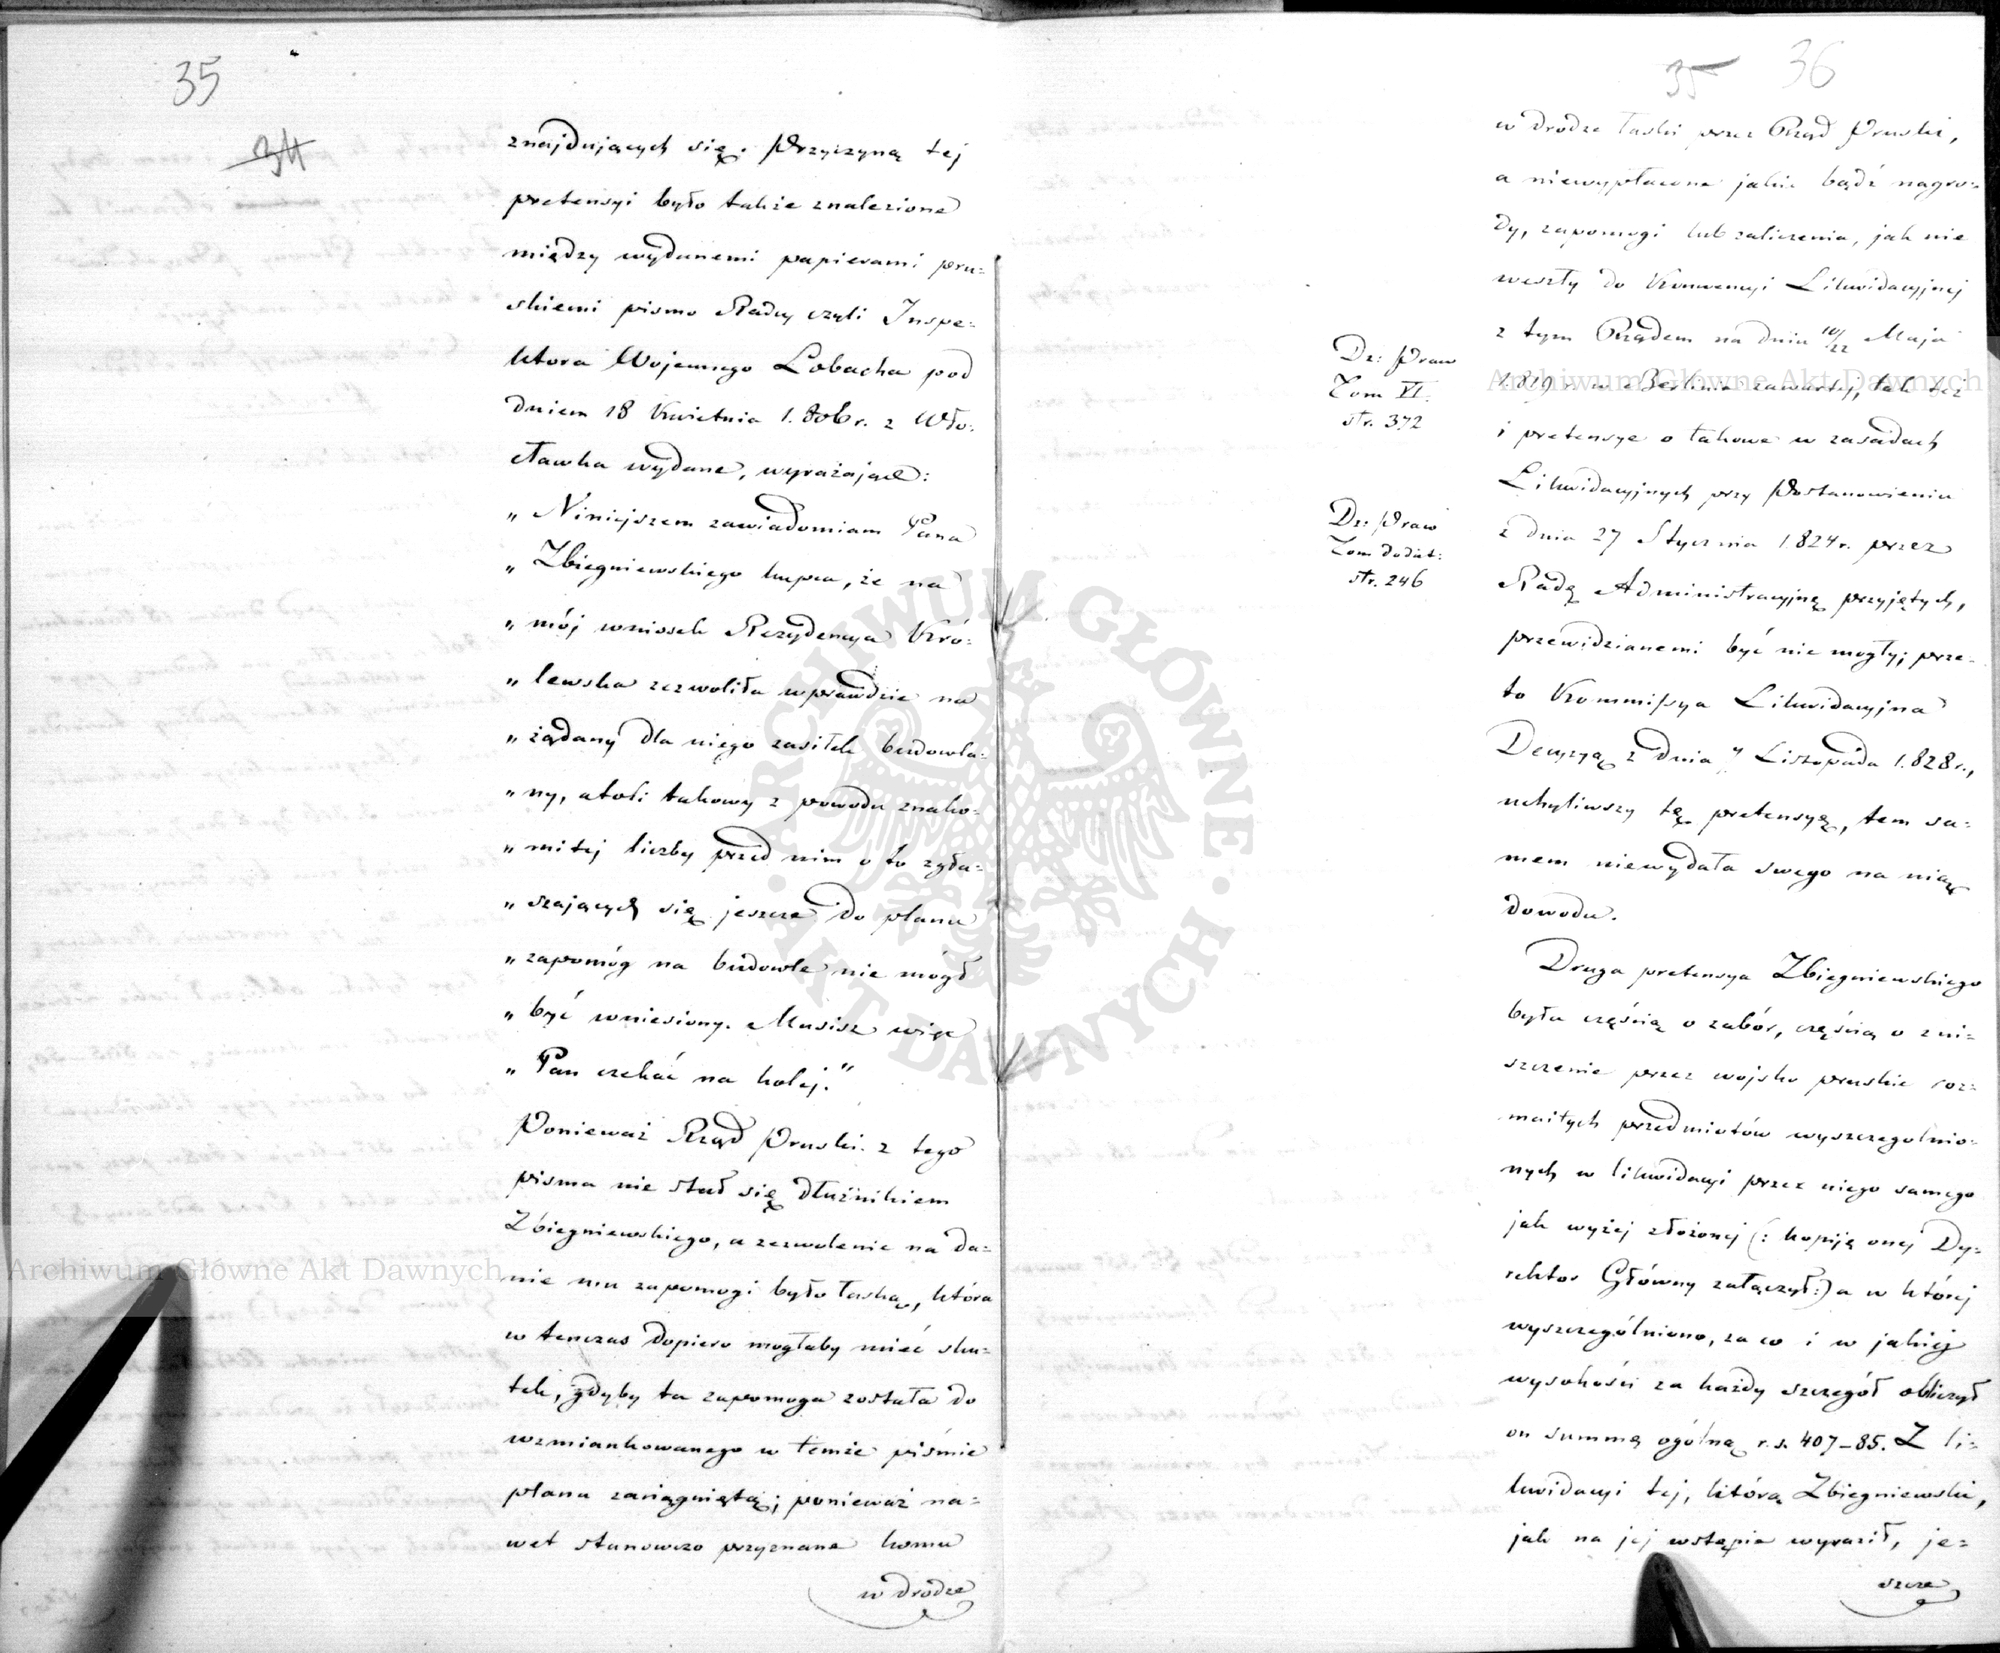 35
34
znajdujących się. Przyczyną tej
pretensyi było także znalezione
między wydanemi papierami pru-
skiemi pismo Radcy czyli Inspe-
ktora Wojennego Lobacha pod
dniem 18 Kwietnia 1.806 r. z Wło-
cławka wydane, wyrażające:
„ Niniejszem zawiadomiam Pana
„ Zbiegniewskiego kupca, że na
„ mój wniosek Rezydencya Kró-
„ lewska zezwoliła wprawdzie na
„ żądany dla niego zasiłek budowla-
„ ny, atoli takowy z powodu znako-
„ mitej liczby przed nim o to zgła-
„ szających się jeszcze do planu
„ zapomóg na budowle nie mógł
„ być wniesiony. Musisz więc
„ Pan czekać na kolej."
Ponieważ Rząd Pruski z tego
pisma nie stał się dłużnikiem
Zbiegniewskiego, a zezwolenie na da-
nie mu zapomogi było łaską, która
w tenczas dopiero mogłaby mieć sku-
tek, gdyby ta zapomoga została do
wzmiankowanego w temże piśmie
planu zaciągniętą; ponieważ na-
wet stanowczo przyznane komu
w drodze
35 36
w drodze łaski przez Rząd Pruski,
a niewypłacone jakie bądź nagro-
dy, zapomogi lub zaliczenia, jak nie
weszły do Konwencyi Likwidacyjnej
z tym Rządem na dniu 10/22 Maja
1.819 r. w Berlinie zawartej, tak też
i pretensye o takowe w zasadach
Likwidacyjnych przy Postanowieniu
z dnia 27 Stycznia 1.824 r. przez
Radę Administracyjną przyjętych,
przewidzianemi być nie mogły; prze-
to Kommissya Likwidacyjna
Decyzyą z dnia 4 Listopada 1.828 r.,
uchyliwszy tę pretensyę, tem sa-
mem niewydała swego na nią
dowodu.
Druga pretensya Zbiegniewskiego
była częścią o zabór, częścią o zni-
szczenie przez wojsko pruskie roz-
maitych przedmiotów wyszczególnio-
nych w likwidacyi przez niego samego
jak wyżej złożonej (: kopiją onej Dy-
rektor Główny załączył :) a w której
wyszczególniono, za co i w jakiej
wysokości za każdy szczegół obliczył
on summę ogólną r.s. 407-85. Z li-
kwidacyi tej, którą Zbiegniewski,
jak na jej wstępie wyraził, je-
szcze
Dz: Praw
Tom VI.
str. 372
Dz: Praw
Tom dodat:
str. 246
Archiwum Główne Akt Dawnych
Archiwum Główne Akt Dawnych
· ARCHIWUM GŁÓWNE · AKT DAWNYCH